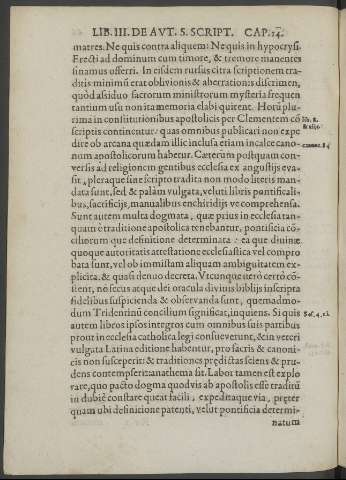 LIB. III. DE AVT. S. SCRIPT. CAP. 14.
matres. Ne quis contra aliquem: Ne quis in hypocrysi.
Erecti ad dominum cum timore, & tremore manentes
simus offerri. In eisdem rursus citra scriptionem tra-
ditis minimũ erat oblivionis & aberrationis discrimen,
quòd assiduo sacrorum ministrorum mysteria frequen
tantium usu non ita memoria elabi quirent. Horũ plu-
rima in constitutionibus apostolicis per Clementem cõ
scriptis continentur: quas omnibus publicari non expe
dire ob arcana quædam illic inclusa etiam in calce cano-
num apostolicorum habetur. Cæterùm postquam con-
versis ad religionem gentibus ecclesia ex angustijs eva-
sit, pleraque sine scripto tradita non modo literis man-
data sunt, sed & palàm vulgata, veluti libris pontificali-
bus, sacrificijs, manualibus enchiridijs ve comprehensa.
Sunt autem multa dogmata, quæ prius in ecclesia tan-
quam è traditione apostolica tenebantur, pontificia cõ-
ciliorum que definitione determinata: ea que divinæ
quoque autoritatis attestatione ecclesiastica vel compro
bata sunt, vel ob immissam aliquam ambiguitatem ex-
plicita, & quasi denuo decreta. Utcunque iterò certò cõ-
stent, nõ secus atque dei oracula divinis biblijs inscripta
fidelibus suspicienda & observanda sunt, quemadmo-
dum Tridentinũ concilium significat, inquiens. Si quis
autem libros ipsos integros cum omnibus suis partibus
prout in ecclesia catholica legi consueverunt, & in veteri
vulgata Latina editione habentur, pro sacris & canoni-
cis non susceperit: & traditiones prædictas sciens & pru-
dens contempserit: anathema sit. Labor tamen est explo
rare, quo pacto dogma quod vis ab apostolis esse traditũ
in dubiè constare queat facili, expeditaque via, præter
quam ubi definitione patenti, velut pontificia determi-
natum
canone. 84
Ses. 4. ca.